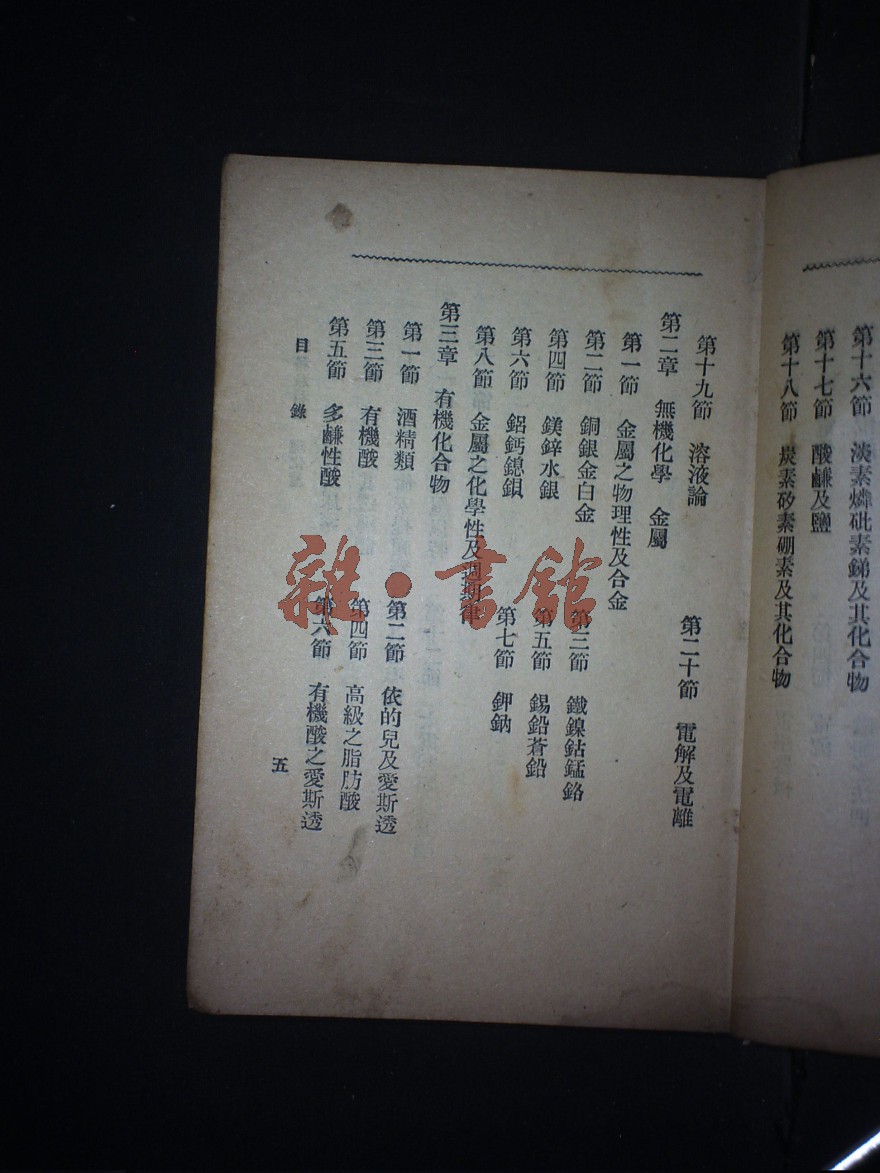 第十六節 淡素燐砒素銻及其化合物
第十七節 酸鹼及鹽
第十八節 炭素矽素硼素及其化合物
第十九節 溶液論 第二十節 電解及電離
第二章 無機化學 金屬
第一節 金屬之物理性及合金
第二節 銅銀金白金 第三節 鐵鎳鈷錳鉻
第四節 鎂鋅水銀 第五節 錫鉛蒼鉛
第六節 鋁鈣鎴鋇 第七節 鉀鈉
第八節 金屬之化學性及週期律
第三章 有機化合物
第一節 酒精類 第二節 依的兒及愛斯透
第三節 有機酸 第四節 高級之脂肪酸
第五節 多鹼性酸 第六節 有機酸之愛斯透
目錄 五
雜·書館